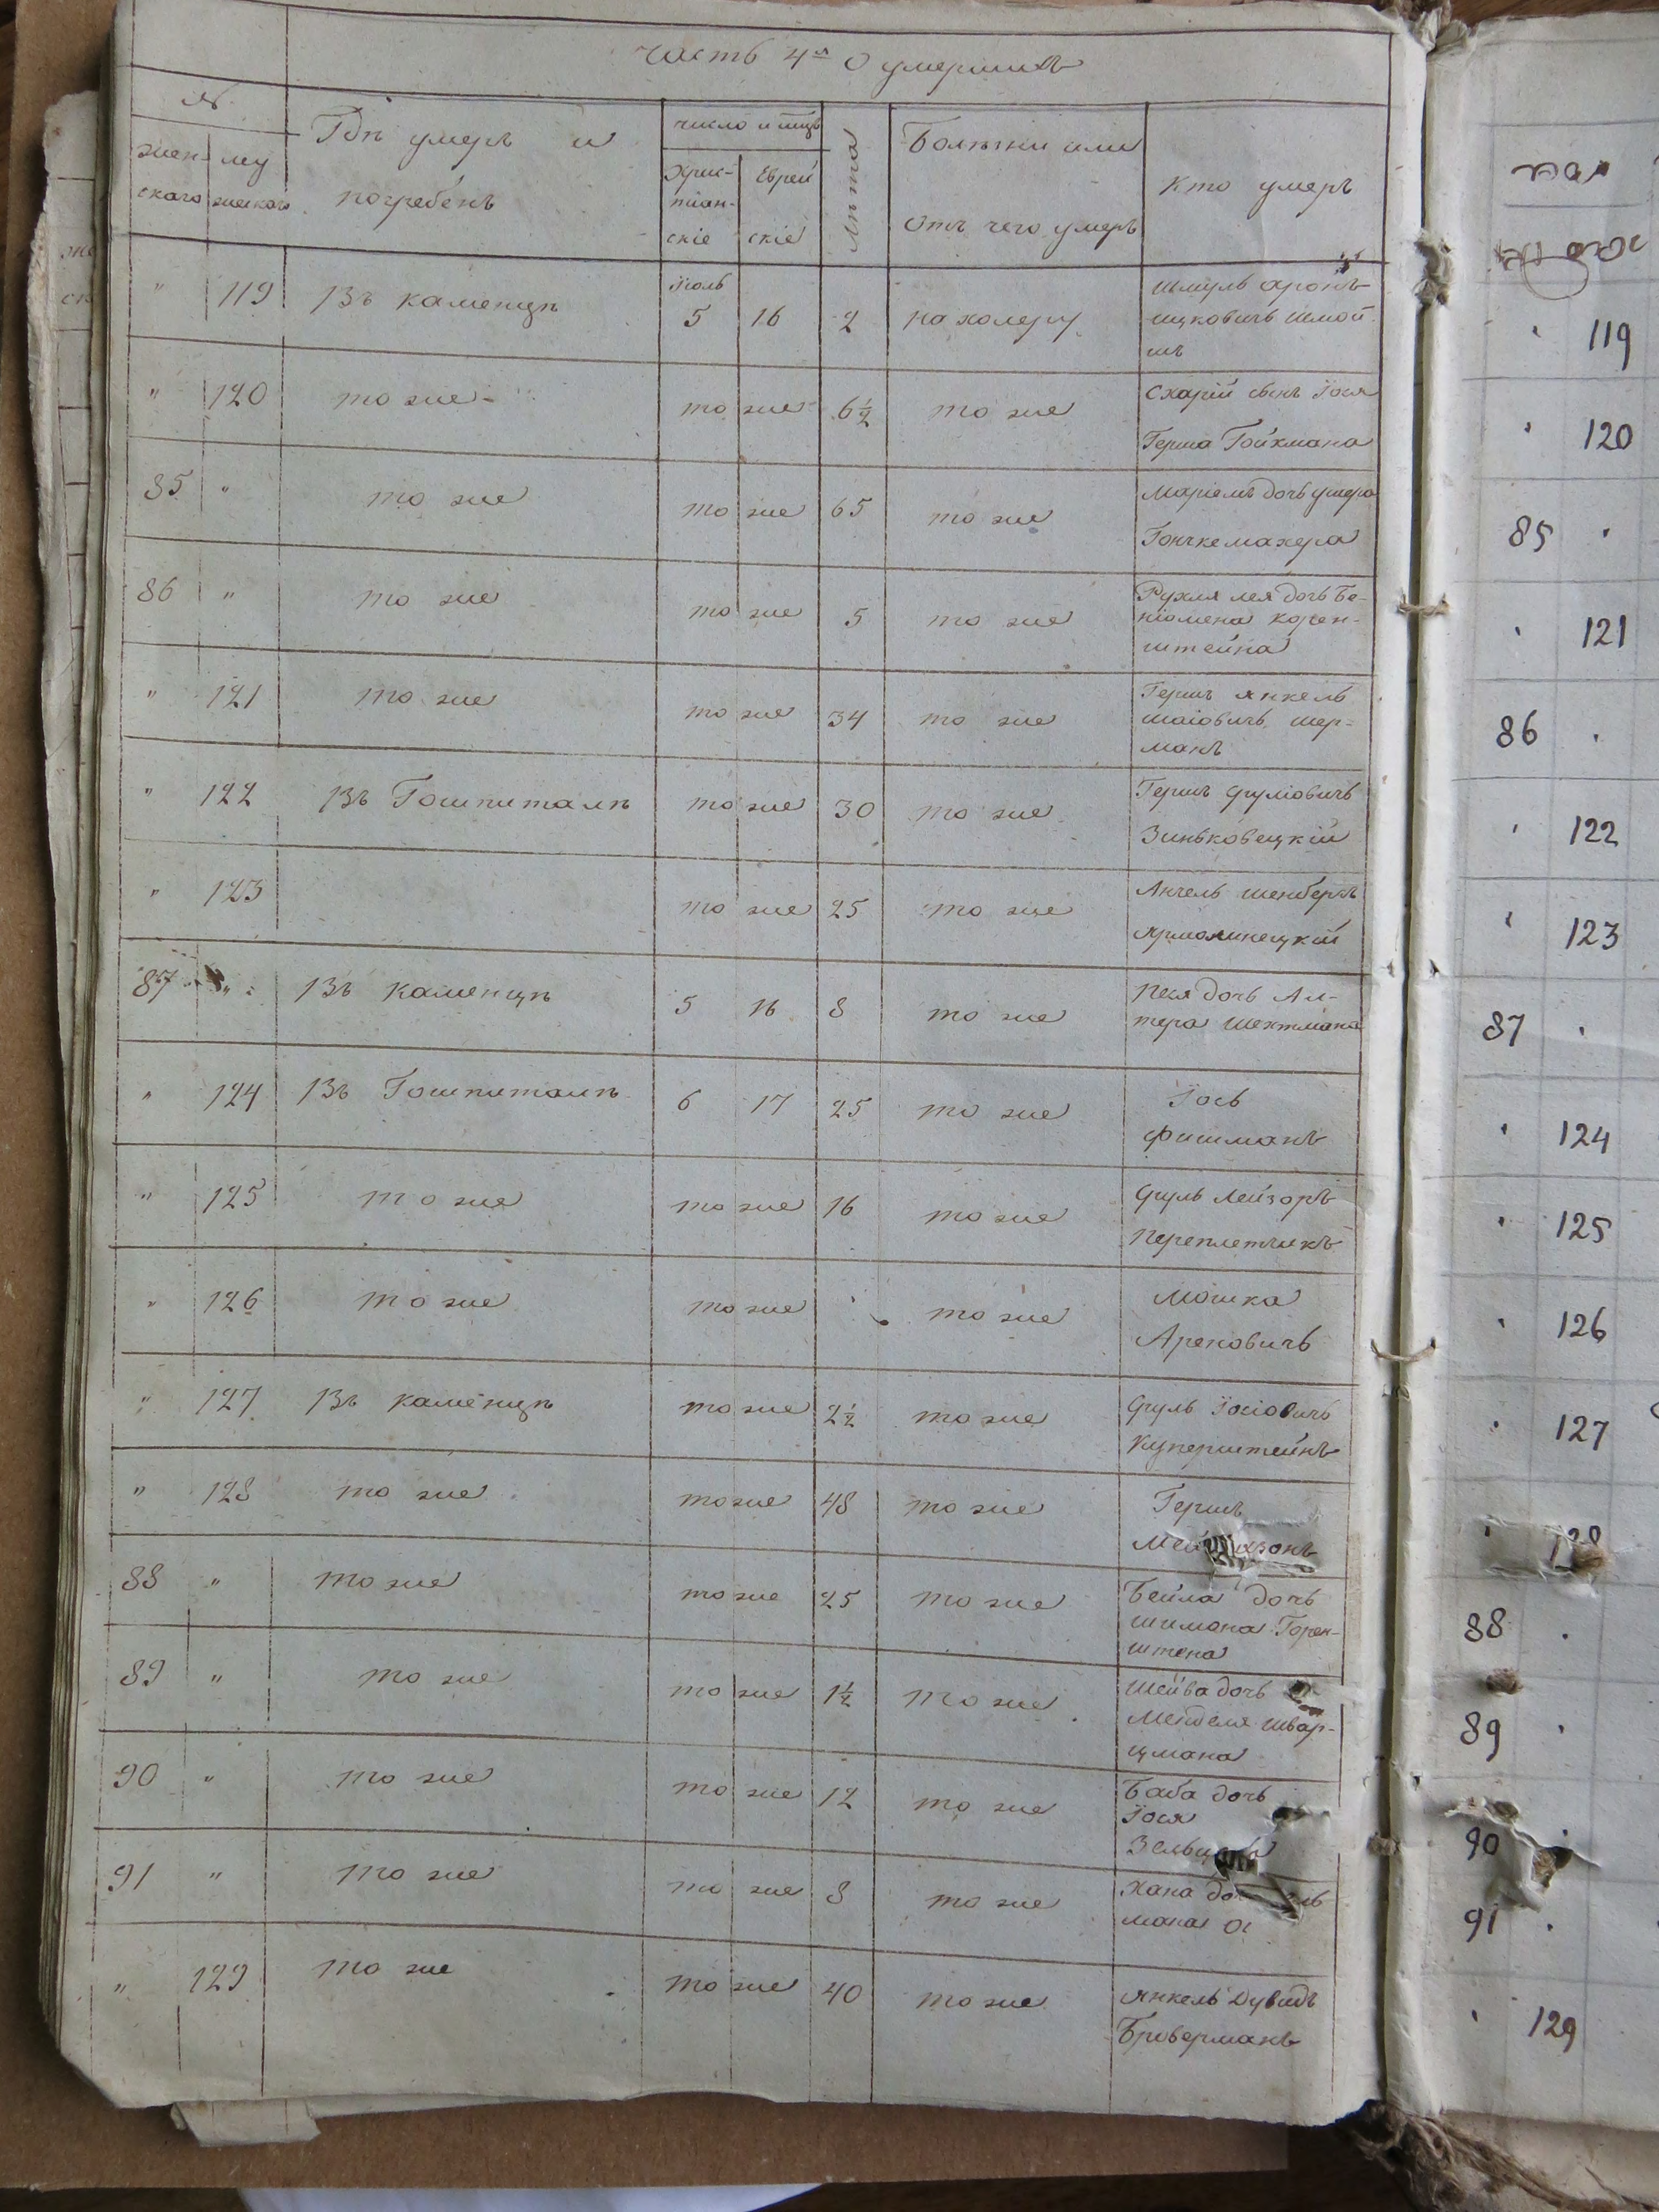 Часть 4я О умершихъ
№
жен-
скаго
му
жескаго
Гдѣ умеръ и
погребенъ
число и мцъ
Хрис-
тіан-
скіе
Еврей
скіе
Лѣта
Болѣзни или
отъ чего умеръ
Кто умеръ
" 119 Въ Каменцѣ Іюль 5 16 2 на холеру Шмуль Аронъ
Ицковичь Шмой
шъ
" 120 то же то же 6½ то же Схарій сынъ Іося
Герша Гойхмана
85 " то же то же 65 то же Маріемъ дочь Ушера
Гончкемахера
86 " то же то же 5 то же Рухля Лея дочь Бе-
ніомена Корен-
штейна
" 121 то же то же 34 то же Гершъ Янкель
Шаіовичь Шер-
манъ
" 122 Въ Гошпиталѣ то же 30 то же Гершъ Сруліовичь
Зиньковецкій
" 123 то же 25 то же Анчель Шенбергъ
Ярмолинецкій
87 " Въ Каменцѣ 5 16 8 то же Песя дочь Ал-
тера Шехтмана
" 124 Въ Гошпиталѣ 6 17 25 то же Іось
Фишманъ
" 125 то же то же 16 то же Сруль Лейзоръ
Переплетчикъ
" 126 то же то же то же Мошка
Ареновичь
" 127 Въ Каменцѣ то же 2½ то же Сруль Іосіовичь
Куперштейнъ
" 128 то же то же 48 то же Гершъ
88 " то же то же 25 то же Бейла дочь
Шимона Горен-
штена
89 " то же то же 1½ то же Шейва дочь
Менделя Швар-
цмана
90 " то же то же 12 то же Баба дочь
Іося
91 " то же то же 8 то же Хана
мана
" 129 то же то же 40 то же Янкель Дувидъ
Броверманъ
119
120
85
121
86
122
123
87
124
125
126
127
128
88
89
90
91
129